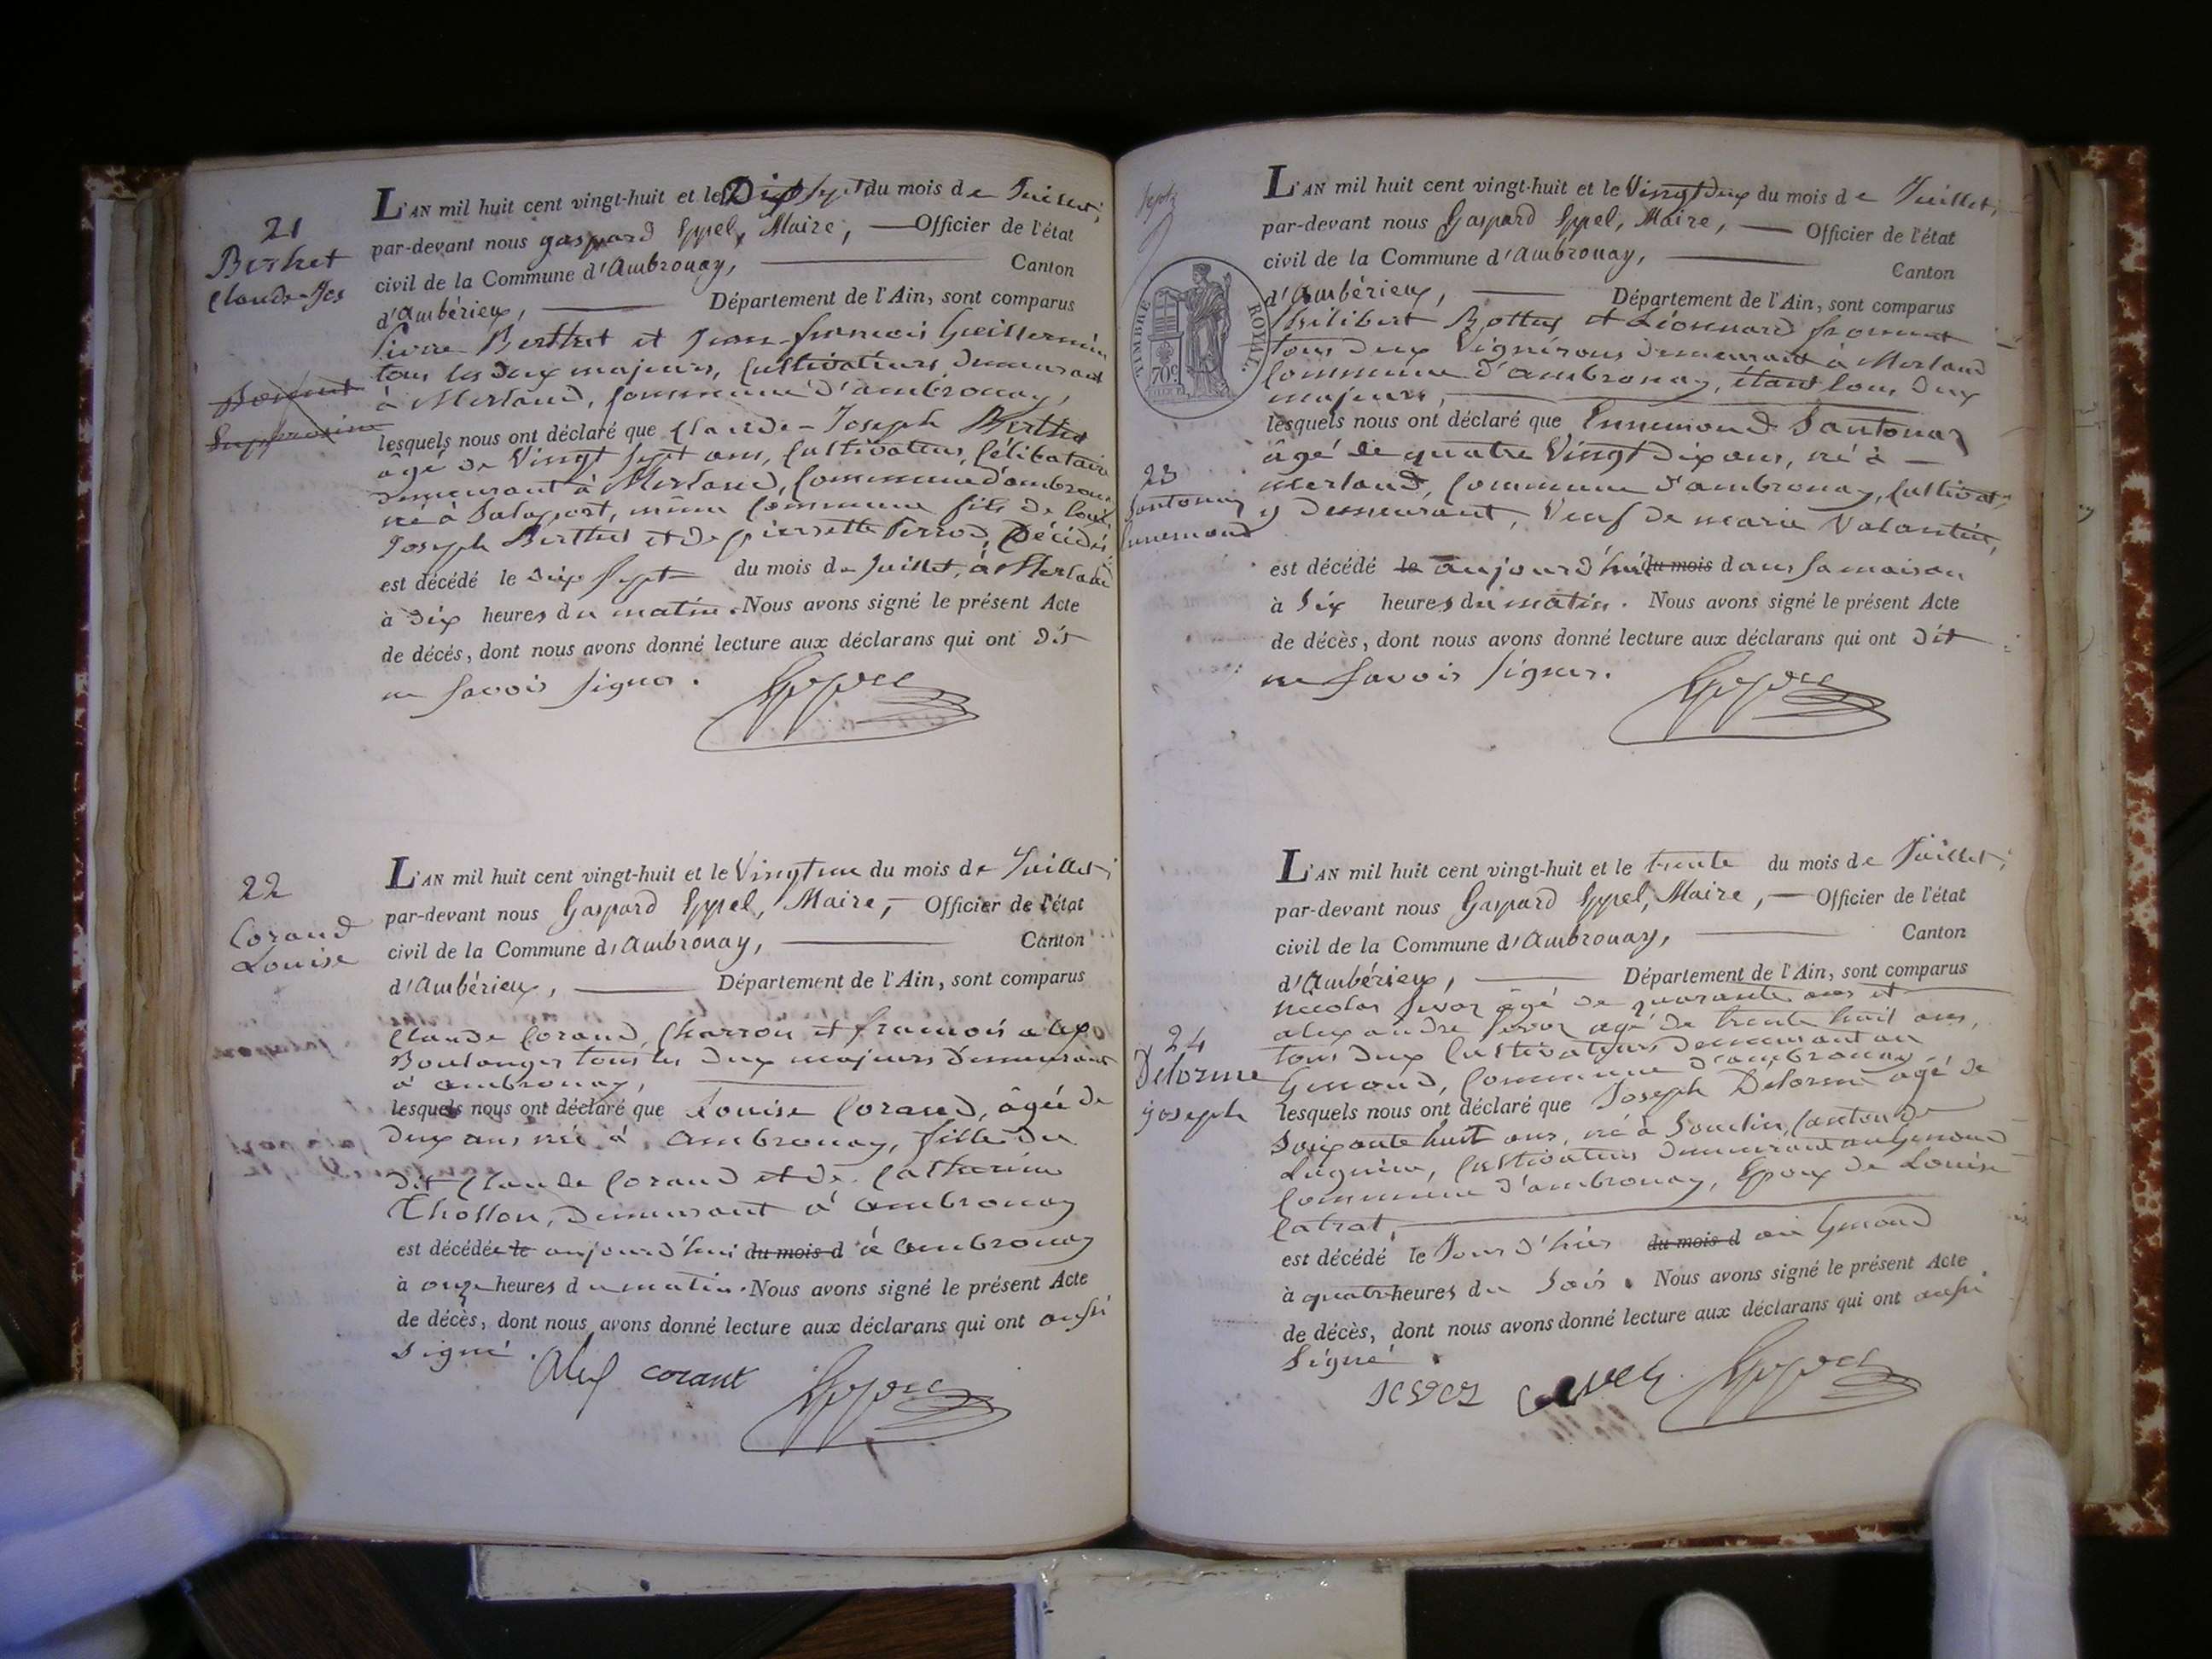 21
Berthet
Claude-Jos
L'AN mil huit cent vingt-huit et le Dix Sept du mois de Juillet,
par-devant nous gaspard Eppel, Maire, Officier de l'état
civil de la Commune d'Ambronay, Canton
d'Ambérieux, Département de l'Ain, sont comparus
Pierre Berthet et Jean-françois Guillermin
tous les deux majeurs, Cultivateurs Demeurant
à Merland, Commune d'ambronay,
lesquels nous ont déclaré que Claude-Joseph Berthet
âgé de Vingt Sept ans, Cultivateur, Célibataire
Demeurant à Merland, Commune d'ambronay
né à Salaport, même Commune fils de Louis
Joseph Berthet et de pierrette Perrod, Décédés
est décédé le dix Sept du mois de Juillet, à Merland
à Dix heures du matin. Nous avons signé le présent Acte
de décés, dont nous avons donné lecture aux déclarans qui ont Dit
ne Savoir Signer.
Eppel
22
Corand
Louise
L'AN mil huit cent vingt-huit et le Vingt un du mois de Juillet,
par-devant nous Gaspard Eppel, Maire, Officier de l'état
civil de la Commune d'Ambronay, Canton
d'Ambérieux, Département de l'Ain, sont comparus
Claude Corand, Charron et françois alex
Boulanger tous les Deux majeurs Demeurant
à ambronay,
lesquels nous ont déclaré que Louise Corand, âgée de
Deux ans née à ambronay, fille du
dit Claude Corand et de Catherine
Thosson, Demeurant à ambronay
est décédée le aujourd'hui du mois d à ambronay
à onze heures du matin. Nous avons signé le présent Acte
de décès, dont nous avons donné lecture aux déclarans qui ont aussi
Signé.
Alex corant Eppel
Sept
TIMBRE ROYAL.
70c
L'AN mil huit cent vingt-huit et le Vingt deux du mois de Juillet,
par-devant nous Gaspard Eppel, Maire, Officier de l'état
civil de la Commune d'Ambronay, Canton
d'Ambérieux, Département de l'Ain, sont comparus
Philibert Bottex et Léonnard froment
tous deux Vignérons Demeurant à Merland
Commune d'ambronay, étant tous Deux
majeurs,
lesquels nous ont déclaré que Ennemond Santonax
âgé de quatre Vingt Dix ans, né à
23
Santonax
Ennemond
merland, Commune d'ambronay, Cultivat
y Demeurant, Veuf de marie Valantin,
est décédé le aujourd'hui du mois dans sa maison
à Six heures du matin. Nous avons signé le présent Acte
de décès, dont nous avons donné lecture aux déclarans qui ont Dit
ne Savoir Signer.
Eppel
L'AN mil huit cent vingt-huit et le trente du mois de Juillet,
par-devant nous Gaspard Eppel, Maire, Officier de l'état
civil de la Commune d'Ambronay, Canton
d'Ambérieux, Département de l'Ain, sont comparus
nicolas âgé de quarante ans et
alexandre agé de trente huit ans,
24
Delorme
joseph
tous deux Cultivateurs Demeurant au
Genoud, Commune d'ambronay
lesquels nous ont déclaré que Joseph Délorme agé de
Soixante huit ans, né à Canton de
Lagnieu, Cultivateur Demeurant au Genoud
Commune d'ambronay, Epoux de Louise
Catrat,
est décédé le Jour d'hier du mois d au Genoud
à quatre heures du Soir. Nous avons signé le présent Acte
de décès, dont nous avons donné lecture aux déclarans qui ont aussi
Signé.
Eppel